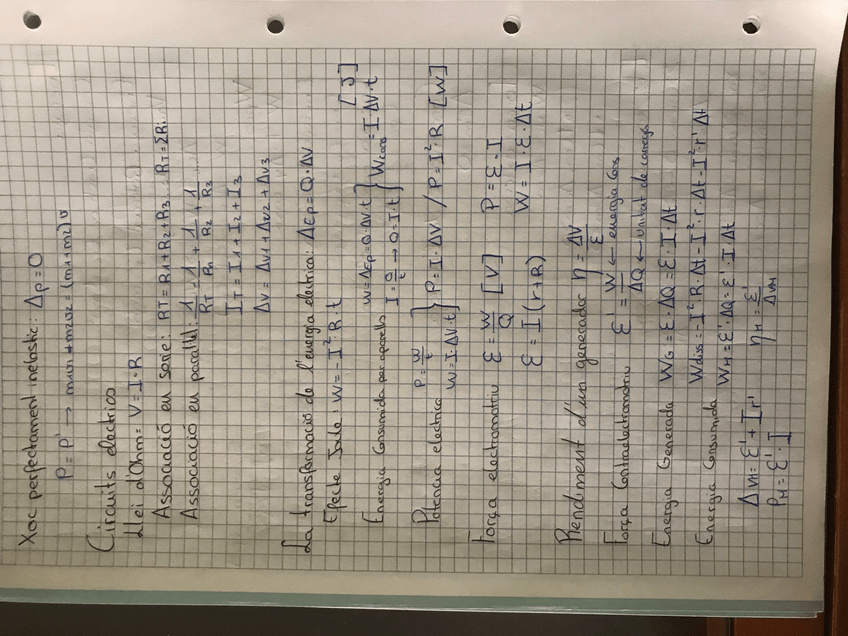 Xoc perfectament inelastic: Δp=0
P=P' → m1v1+m2v2=(m1+m2)v
Circuits electrics
Llei d'Ohm: V=I·R
Associació en serie: RT=R1+R2+R3 .. RT=ΣRi
Associació en paral·lel: 1/RT = 1/R1 + 1/R2 + 1/R3
IT=I1+I2+I3
ΔV=ΔV1+ΔV2+ΔV3
La transformació de l'energia electrica: ΔEp=Q·ΔV
Efecte Joule: W=-I²·R·t
Energia Consumida per aparells W=ΔEp=Q·ΔV·t } Wcons=I·ΔV·t [J]
I=Q/t → Q=I·t
Potencia electrica P=W/t } P=I·ΔV / P=I²·R [W]
W=I·ΔV·t
Força electromotriu ε=W/Q [V] P=ε·I
ε=I(r+R) W=I·ε·Δt
Rendiment d'un generador η=ΔV/ε
Força Contraelectromotriu ε'=W/ΔQ ← energia Cons ← unitat de carrega
Energia Generada WG=ε·ΔQ=ε·I·Δt
Wdiss=-I²R·Δt-I²·r·Δt-I²r'Δt
Energia Consumida WM=ε'·ΔQ=ε'·I·Δt
ΔVM=ε'+Ir' ηM=ε'/ΔVM
PM=ε'·I